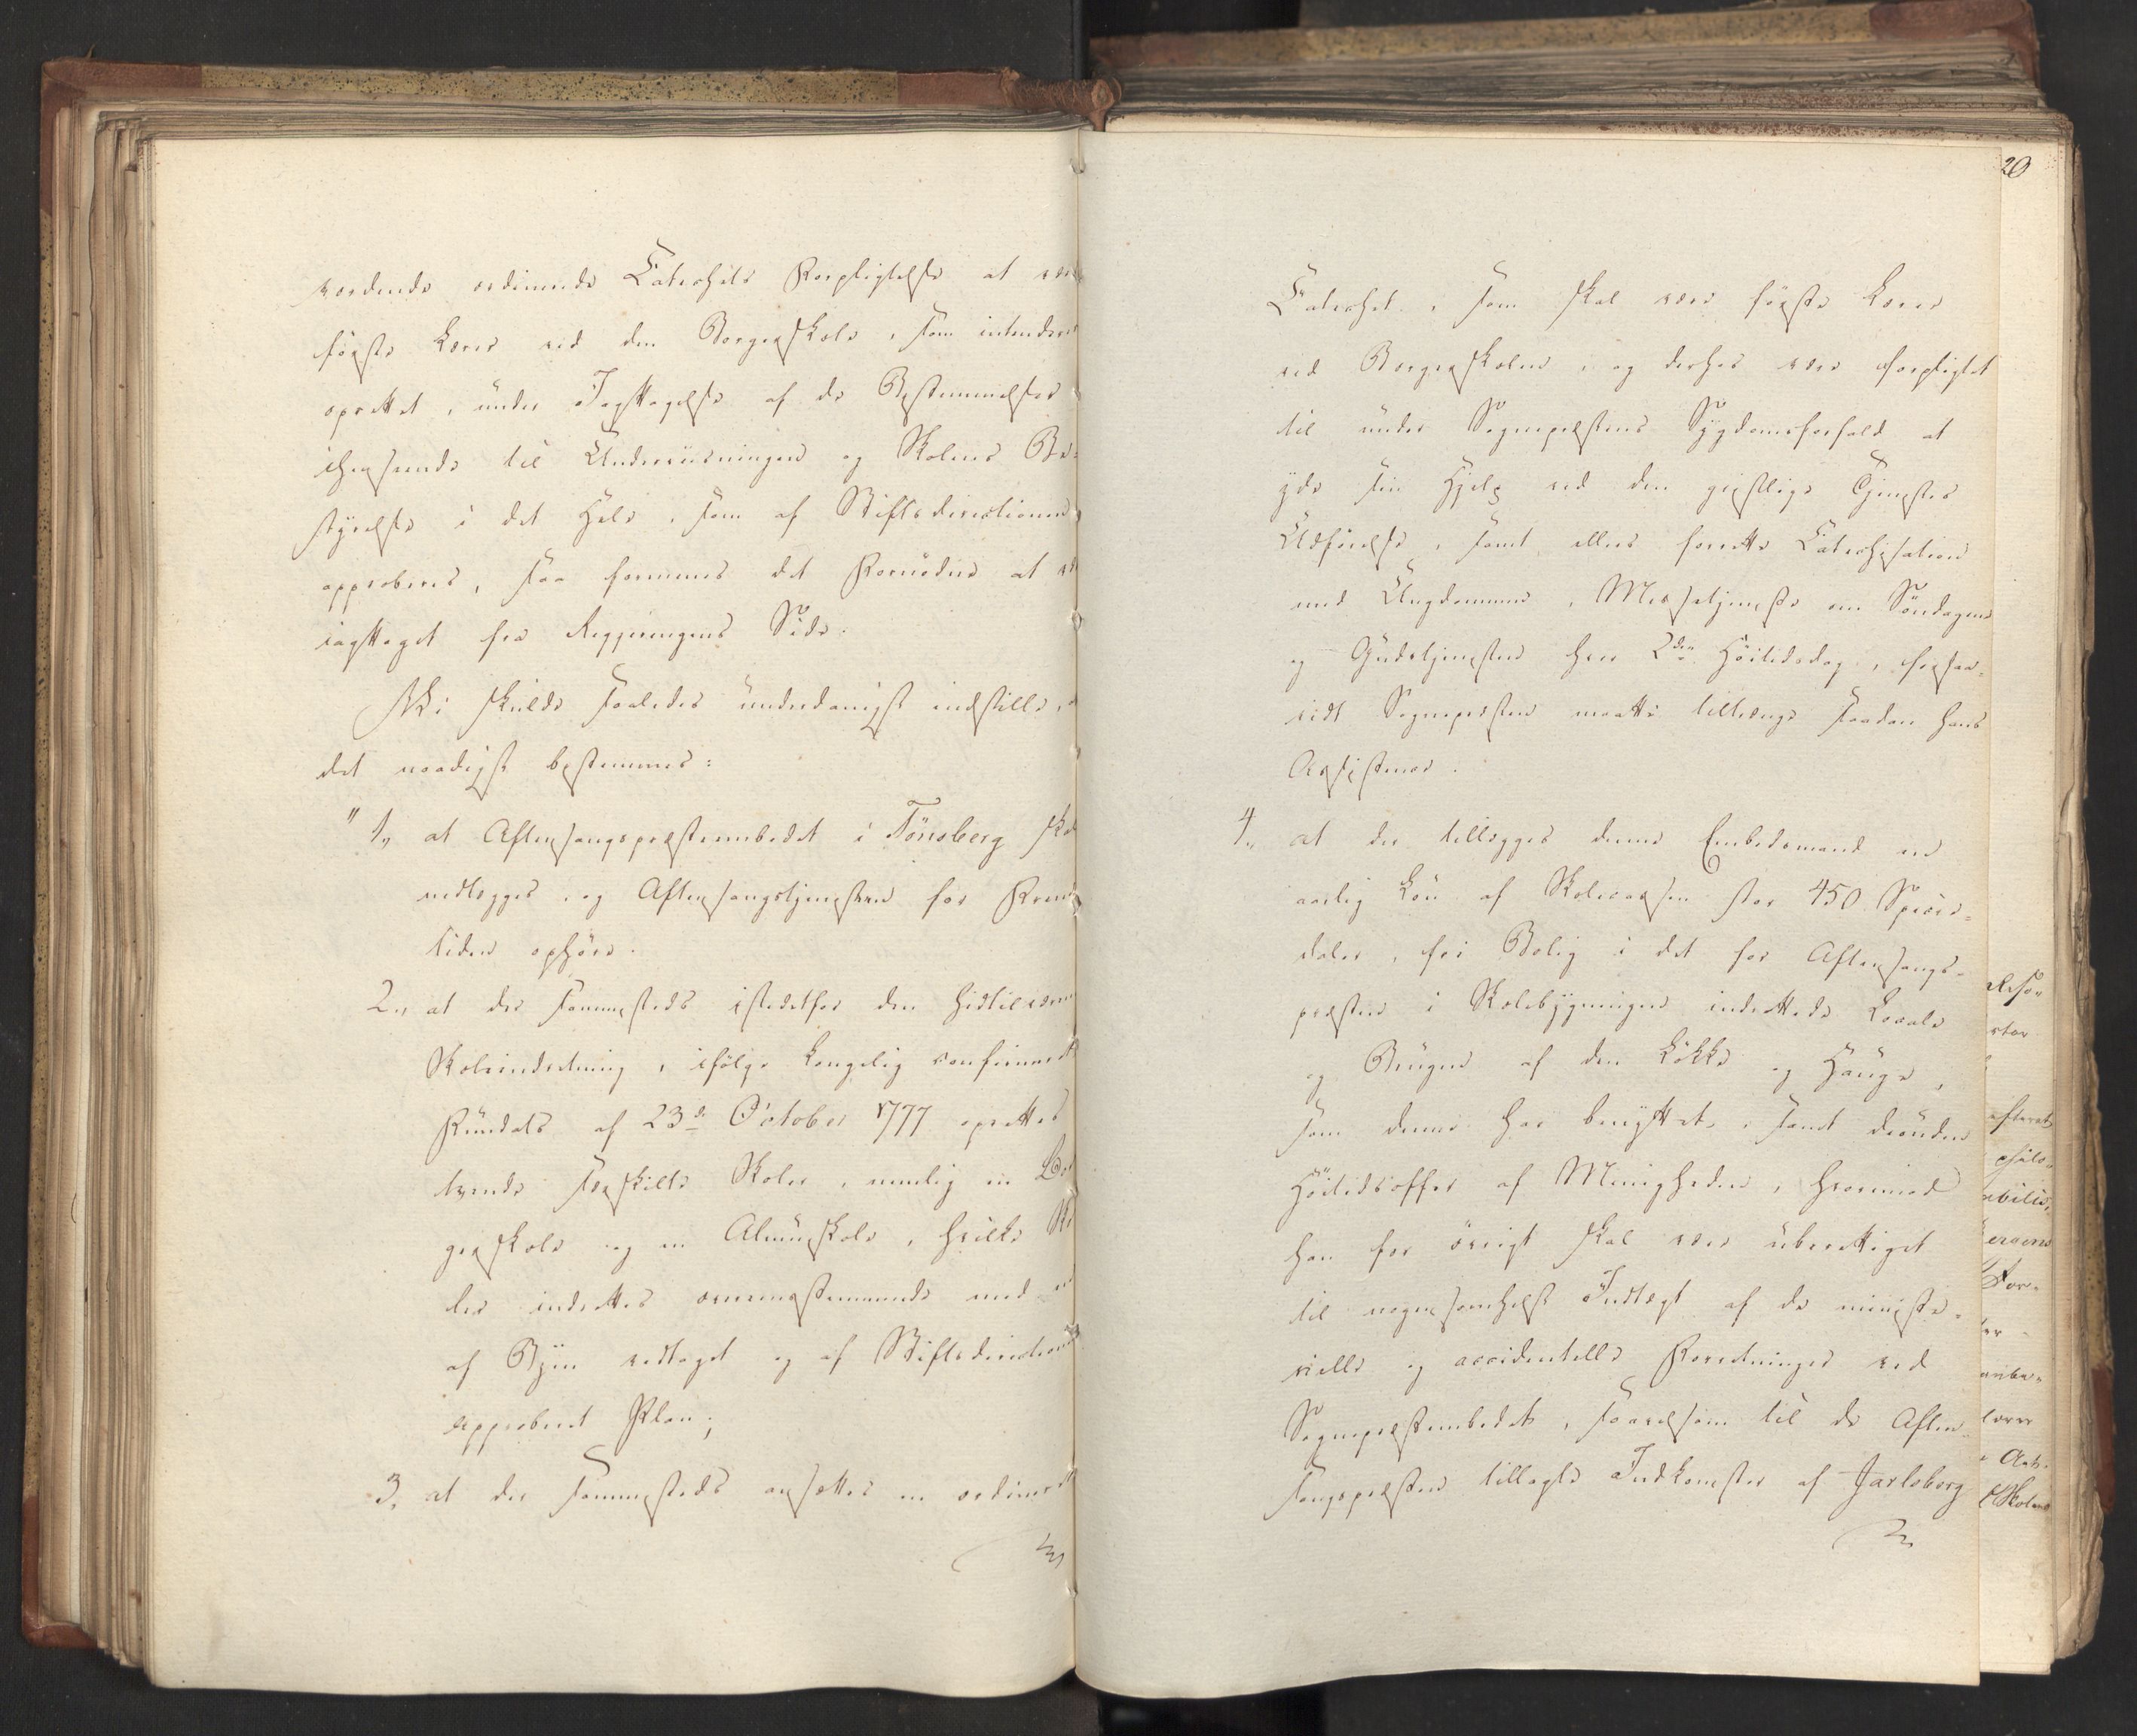 vordende ordinerede Catechets Forpligtelse at være
første Lærer ved den Borgerskole, som intenderes
oprettet, under Iagttagelse af de Bestemmelser
henseende til Underviisningen og Skolens Be-
styrelse i det Hele, som af Stiftsdirectionen
approberes, saa formenes det Fornødne at
iagttaget fra Regjeringens Side.
Vi skulde saaledes underdanigst indstille,
det naadigst bestemmes:
"1, at Aftensangspræsteembedet i Tönsberg skal
nedlægges, og Aftensangstjenesten for Frem-
tiden ophöre.
2, at der sammesteds istedetfor den hidtilværende
Skoleindretning, ifølge kongelig confirmeret
Fundats af 23de October 1777 oprettes
tvende særskilte Skoler, nemlig en Bor-
gerskole og en Almueskole, hvilke Sko-
ler indrettes overeensstemmende med en
af Byen vedtaget og af Stiftsdirectionen
approberet Plan;
3, at der sammesteds ansættes en ordineret
20
Catechet, som skal være første Lærer
ved Borgerskolen, og derhos være forpligtet
til under Sognepræstens Sygdomsforfald at
yde sin Hjelp ved den geistlige Tjenestes
Udförelse, samt ellers forrette Catechisation
med Ungdommen, Messetjeneste om Söndagene
og Gudstjenesten hver 2den Höitidsdag, forsaa-
vidt Sognepræsten maatte tiltrænge saadan hans
Assistence.
4, at der tillægges denne Embedsmand en
aarlig Lön af Skolecassen stor 450 Specie-
daler, fri Bolig i det for Aftensangs-
præsten i Skolebygningen indrettede Locale
og Brugen af den Løkke og Hauge,
som denne har benyttet, samt desuden
Höitidsoffer af Menigheden, hvorimod
han for övrigt skal være uberettiget
til nogensomhelst Indtægt af de ministe-
rielle og accidentelle Forretninger ved
Sognepræsteembedet, saavelsom til de Aften-
sangspræsten tillagte Indkomster af Jarlsberg